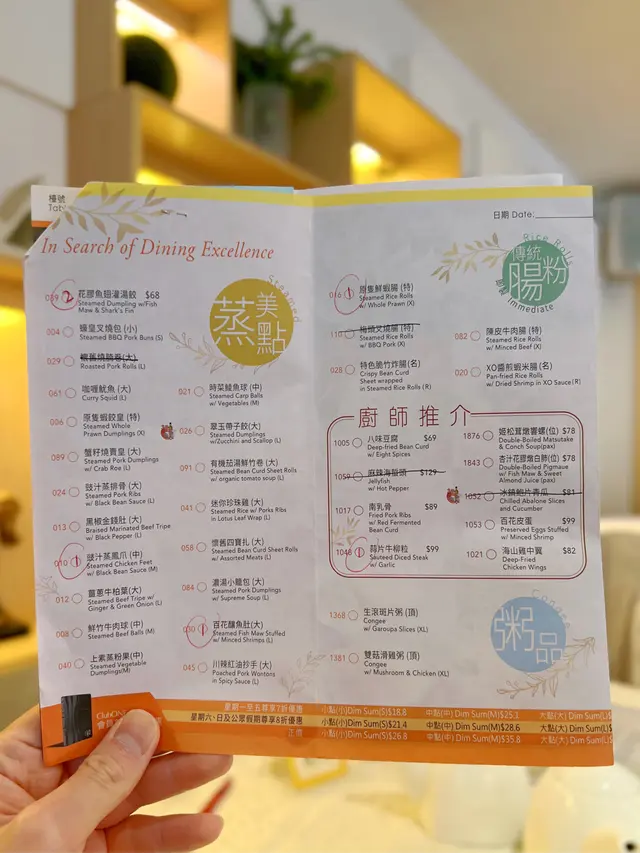 檯號
日期 Date:
In Search of Dining Excellence
蒸美點
Steamed
花膠魚翅灌湯餃 $68
Steamed Dumpling w/Fish
Maw & Shark's Fin
004 蠔皇叉燒包 (小)
Steamed BBQ Pork Buns (S)
029
Roasted Pork Rolls (L)
061 咖喱魷魚 (大)
Curry Squid (L)
006 原隻蝦餃皇 (特)
Steamed Whole
Prawn Dumplings (X)
089 蟹籽燒賣皇 (大)
Steamed Pork Dumplings
w/ Crab Roe (L)
024 豉汁蒸排骨 (大)
Steamed Pork Ribs
w/ Black Bean Sauce (L)
013 黑椒金錢肚 (大)
Braised Marinated Beef Tripe
w/ Black Pepper (L)
010 1 豉汁蒸鳳爪 (中)
Steamed Chicken Feet
w/ Black Bean Sauce (M)
012 薑蔥牛柏葉 (大)
Steamed Beef Tripe w/
Ginger & Green Onion (L)
008 鮮竹牛肉球 (中)
Steamed Beef Balls (M)
040 上素蒸粉果(中)
Steamed Vegetable
Dumplings(M)
021 時菜鯪魚球 (中)
Steamed Carp Balls
w/ Vegetables (M)
026 翠玉帶子餃(大)
Steamed Dumplings
w/Zucchini and Scallop (L)
091 有機茄湯鮮竹卷 (大)
Steamed Bean Curd Sheet Rolls
w/ organic tomato soup (L)
041 迷你珍珠雞 (大)
Steamed Rice w/ Porks Ribs
in Lotus Leaf Wrap (L)
058 懷舊四寶扎 (大)
Steamed Bean Curd Sheet Rolls
w/ Assorted Meats (L)
084 濃湯小籠包 (大)
Steamed Pork Dumplings
w/ Supreme Soup (L)
030 1 百花釀魚肚(大)
Steamed Fish Maw Stuffed
w/ Minced Shrimps (L)
045 川辣紅油抄手 (大)
Poached Pork Wontons
in Spicy Sauce (L)
傳統腸粉
即製 Immediate
Rice Rolls
016 1 原隻鮮蝦腸 (特)
Steamed Rice Rolls
w/ Whole Prawn (X)
110 梅頭叉燒腸 (特)
Steamed Rice Rolls
w/ BBQ Pork (X)
028 特色脆竹炸腸(名)
Crispy Bean Curd
Sheet wrapped
in Steamed Rice Rolls (R)
082 陳皮牛肉腸 (特)
Steamed Rice Rolls
w/ Minced Beef (X)
020 XO醬煎蝦米腸(名)
Pan-fried Rice Rolls
w/ Dried Shrimp in XO Sauce(R)
廚師推介
1005 八味豆腐 $69
Deep-fried Bean Curd
w/ Eight Spices
1059 麻辣海蜇頭 $129
Jellyfish
w/ Hot Pepper
1017 南乳骨 $89
Fried Pork Ribs
w/ Red Fermented
Bean Curd
1048 1 蒜片牛柳粒 $99
Sauteed Diced Steak
w/ Garlic
1876 姬松茸燉響螺(位) $78
Double-Boiled Matsutake
& Conch Soup(pax)
1843 杏汁花膠燉白肺(位) $78
Double-Boiled Pigmaue
w/ Fish Maw & Sweet
Almond Juice (pax)
1052 冰鎮鮑片青瓜 $81
Chilled Abalone Slices
and Cucumber
1053 百花皮蛋 $99
Preserved Eggs Stuffed
w/ Minced Shrimp
1021 海山雞中翼 $82
Deep-Fried
Chicken Wings
粥品
Congee
1368 生滾斑片粥 (頂)
Congee
w/ Garoupa Slices (XL)
1381 雙菇滑雞粥 (頂)
Congee
w/ Mushroom & Chicken (XL)
星期一至五尊享7折優惠 小點(小)Dim Sum(S)$18.8 中點(中) Dim Sum(M)$25.1 大點(大) Dim Sum(L)
星期六、日及公眾假期尊享8折優惠 小點(小)Dim Sum(S)$21.4 中點(中) Dim Sum(M)$28.6 大點(大) Dim Sum(L)
正價 小點(小)Dim Sum(S)$26.8 中點(中) Dim Sum(M)$35.8 大點(大) Dim Sum(L)